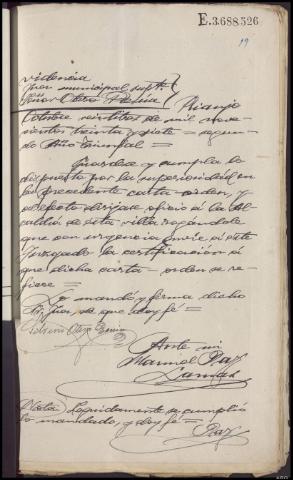 E.3.688,526
19
videncia
Juez municipal supte.
Señor Otero Rianjo
Octubre veintitres de mil nove-
cientos treinta y siete = segun-
do Año triunfal =
Guardese y cumplase lo
dispuesto por la superioridad en
la precedente carta-orden, y
al efecto dirijase oficio á la Al-
caldía de esta villa rogándole
que con urgencia envíe á este
Juzgado la certificación á
que dicha carta-orden se re-
fiere =
Lo mandó y firma dicho
Sr. Juez de que doy fé =
Otero
Ante mi
Manuel Paz
Nota) Seguidamente se cumplió
lo mandado, y doy fé =
Paz